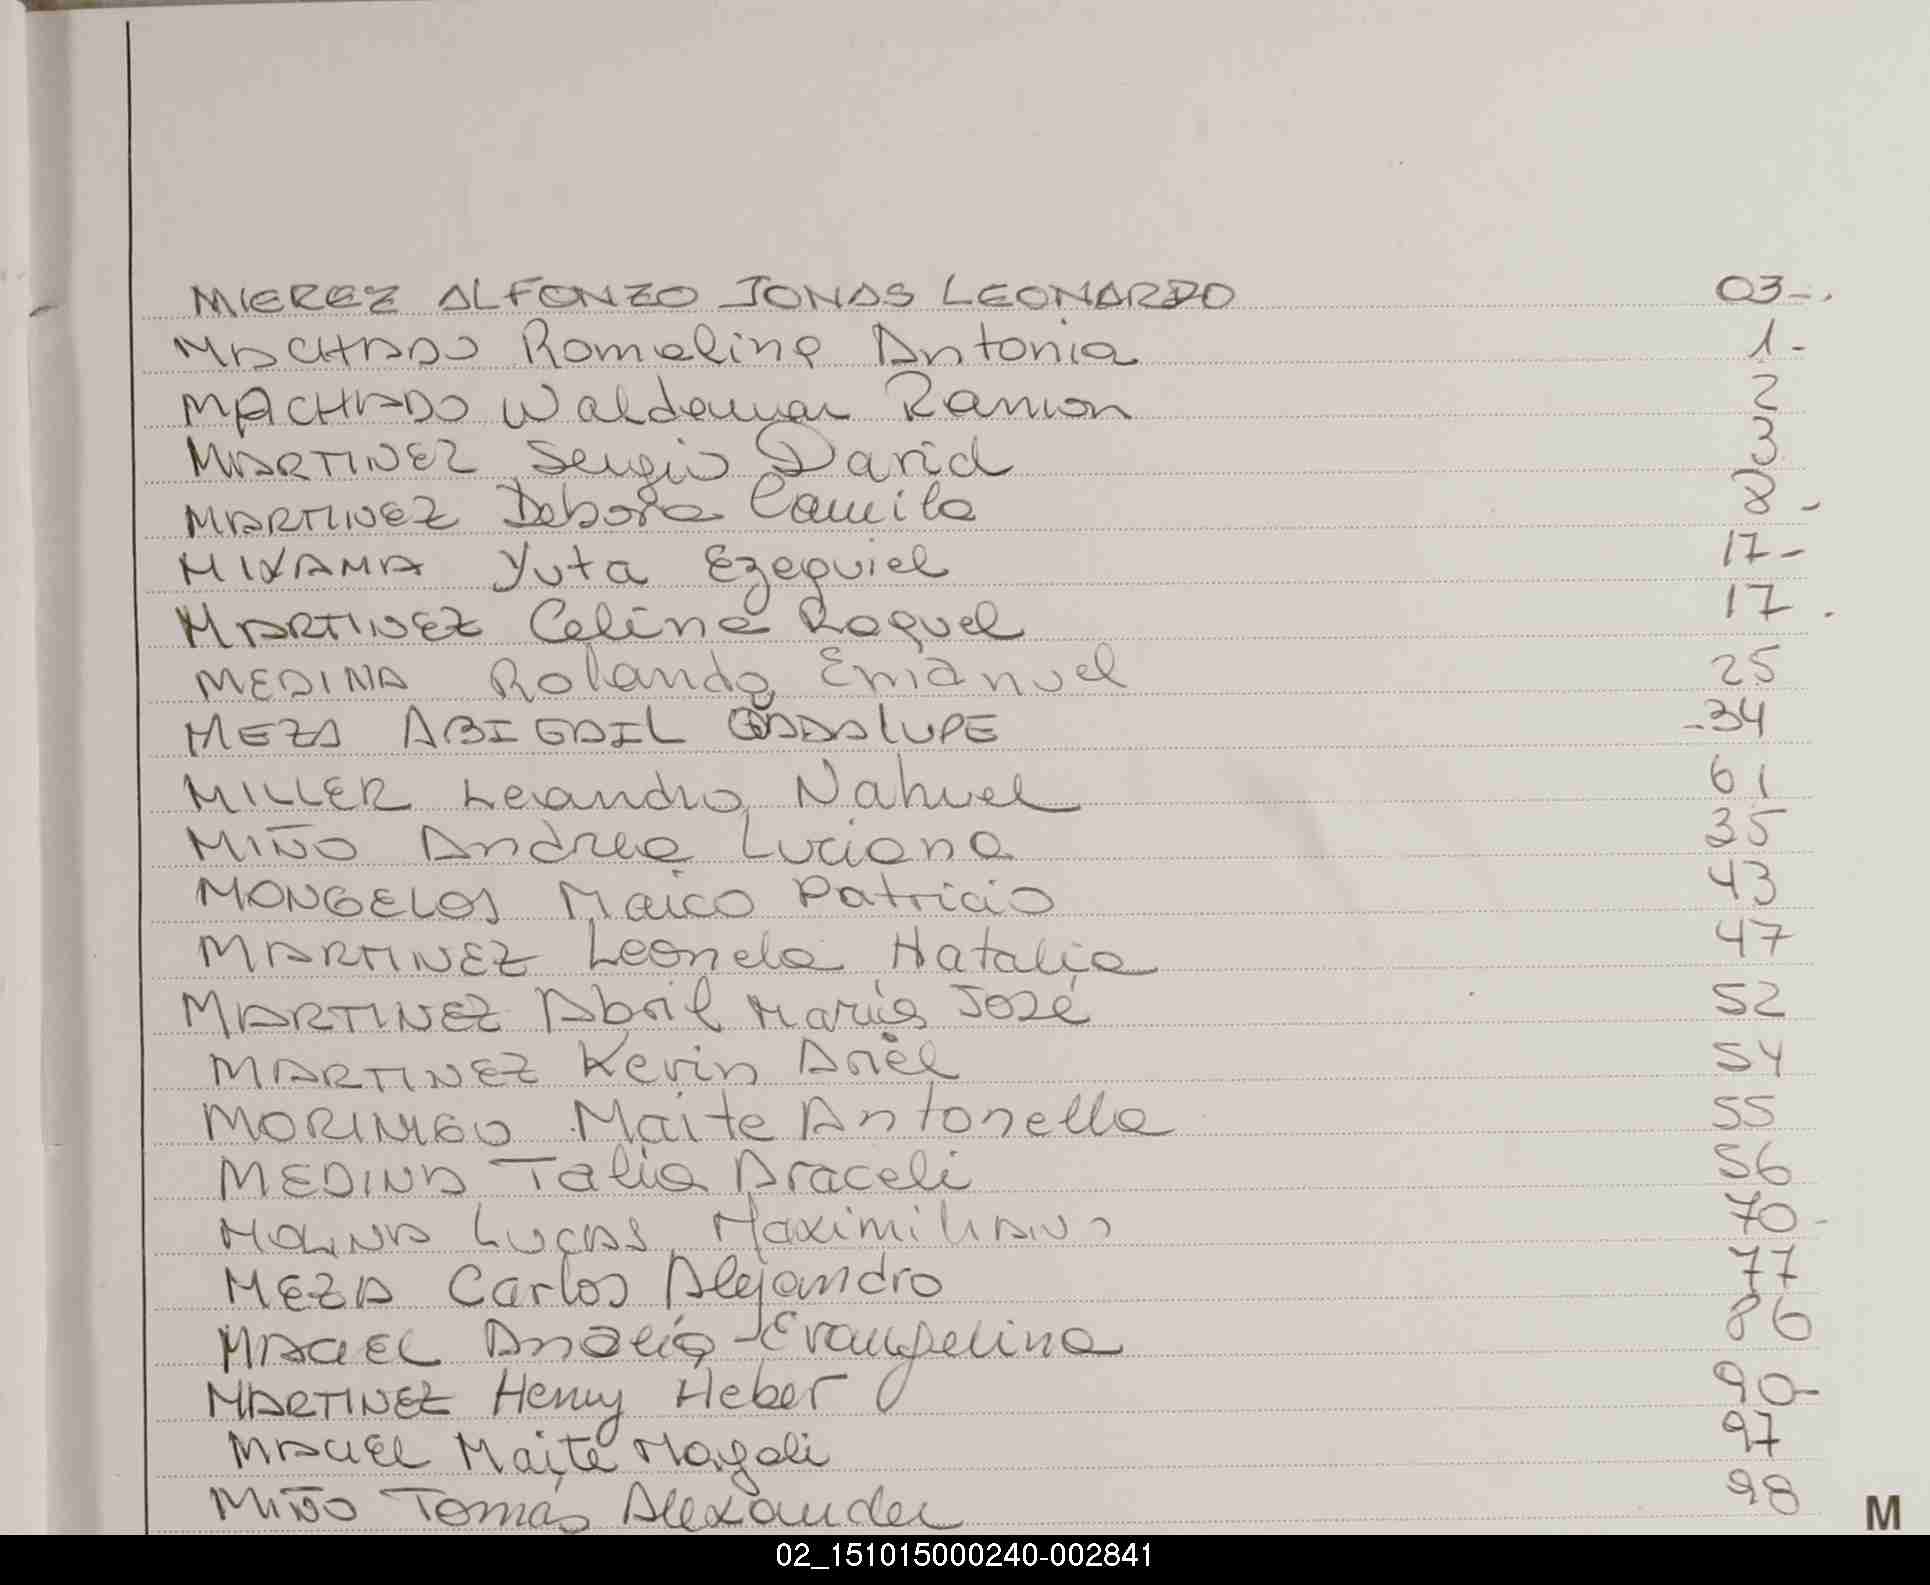 MIEREZ ALFONZO JONAS LEONARDO 03-.
MACHADO Romelina Antonia 1-
MACHADO Waldemar Ramon 2
MARTINEZ Sergio David 3
MARTINEZ Debora Camila 8-
MIYAMA Yuta Ezequiel 17-
MARTINEZ Celina Raquel 17.
MEDINA Rolando Emanuel 25
MEZA ABIGAIL GUADALUPE -34
MILLER Leandro Nahuel 61
MIÑO Andrea Luciana 35
MONGELOS Maico Patricio 43
MARTINEZ Leonela Natalia 47
MARTINEZ Abril María José 52
MARTINEZ Kevin Ariel 54
MORINIGO Maite Antonella 55
MEDINA Talia Araceli 56
MOLINA Lucas Maximiliano 70-
MEZA Carlos Alejandro 77
MACIEL Analía Evangelina 86
MARTINEZ Henry Heber 90-
MACIEL Maite Magali 97
MIÑO Tomás Alexander 98
M
02_151015000240-002841